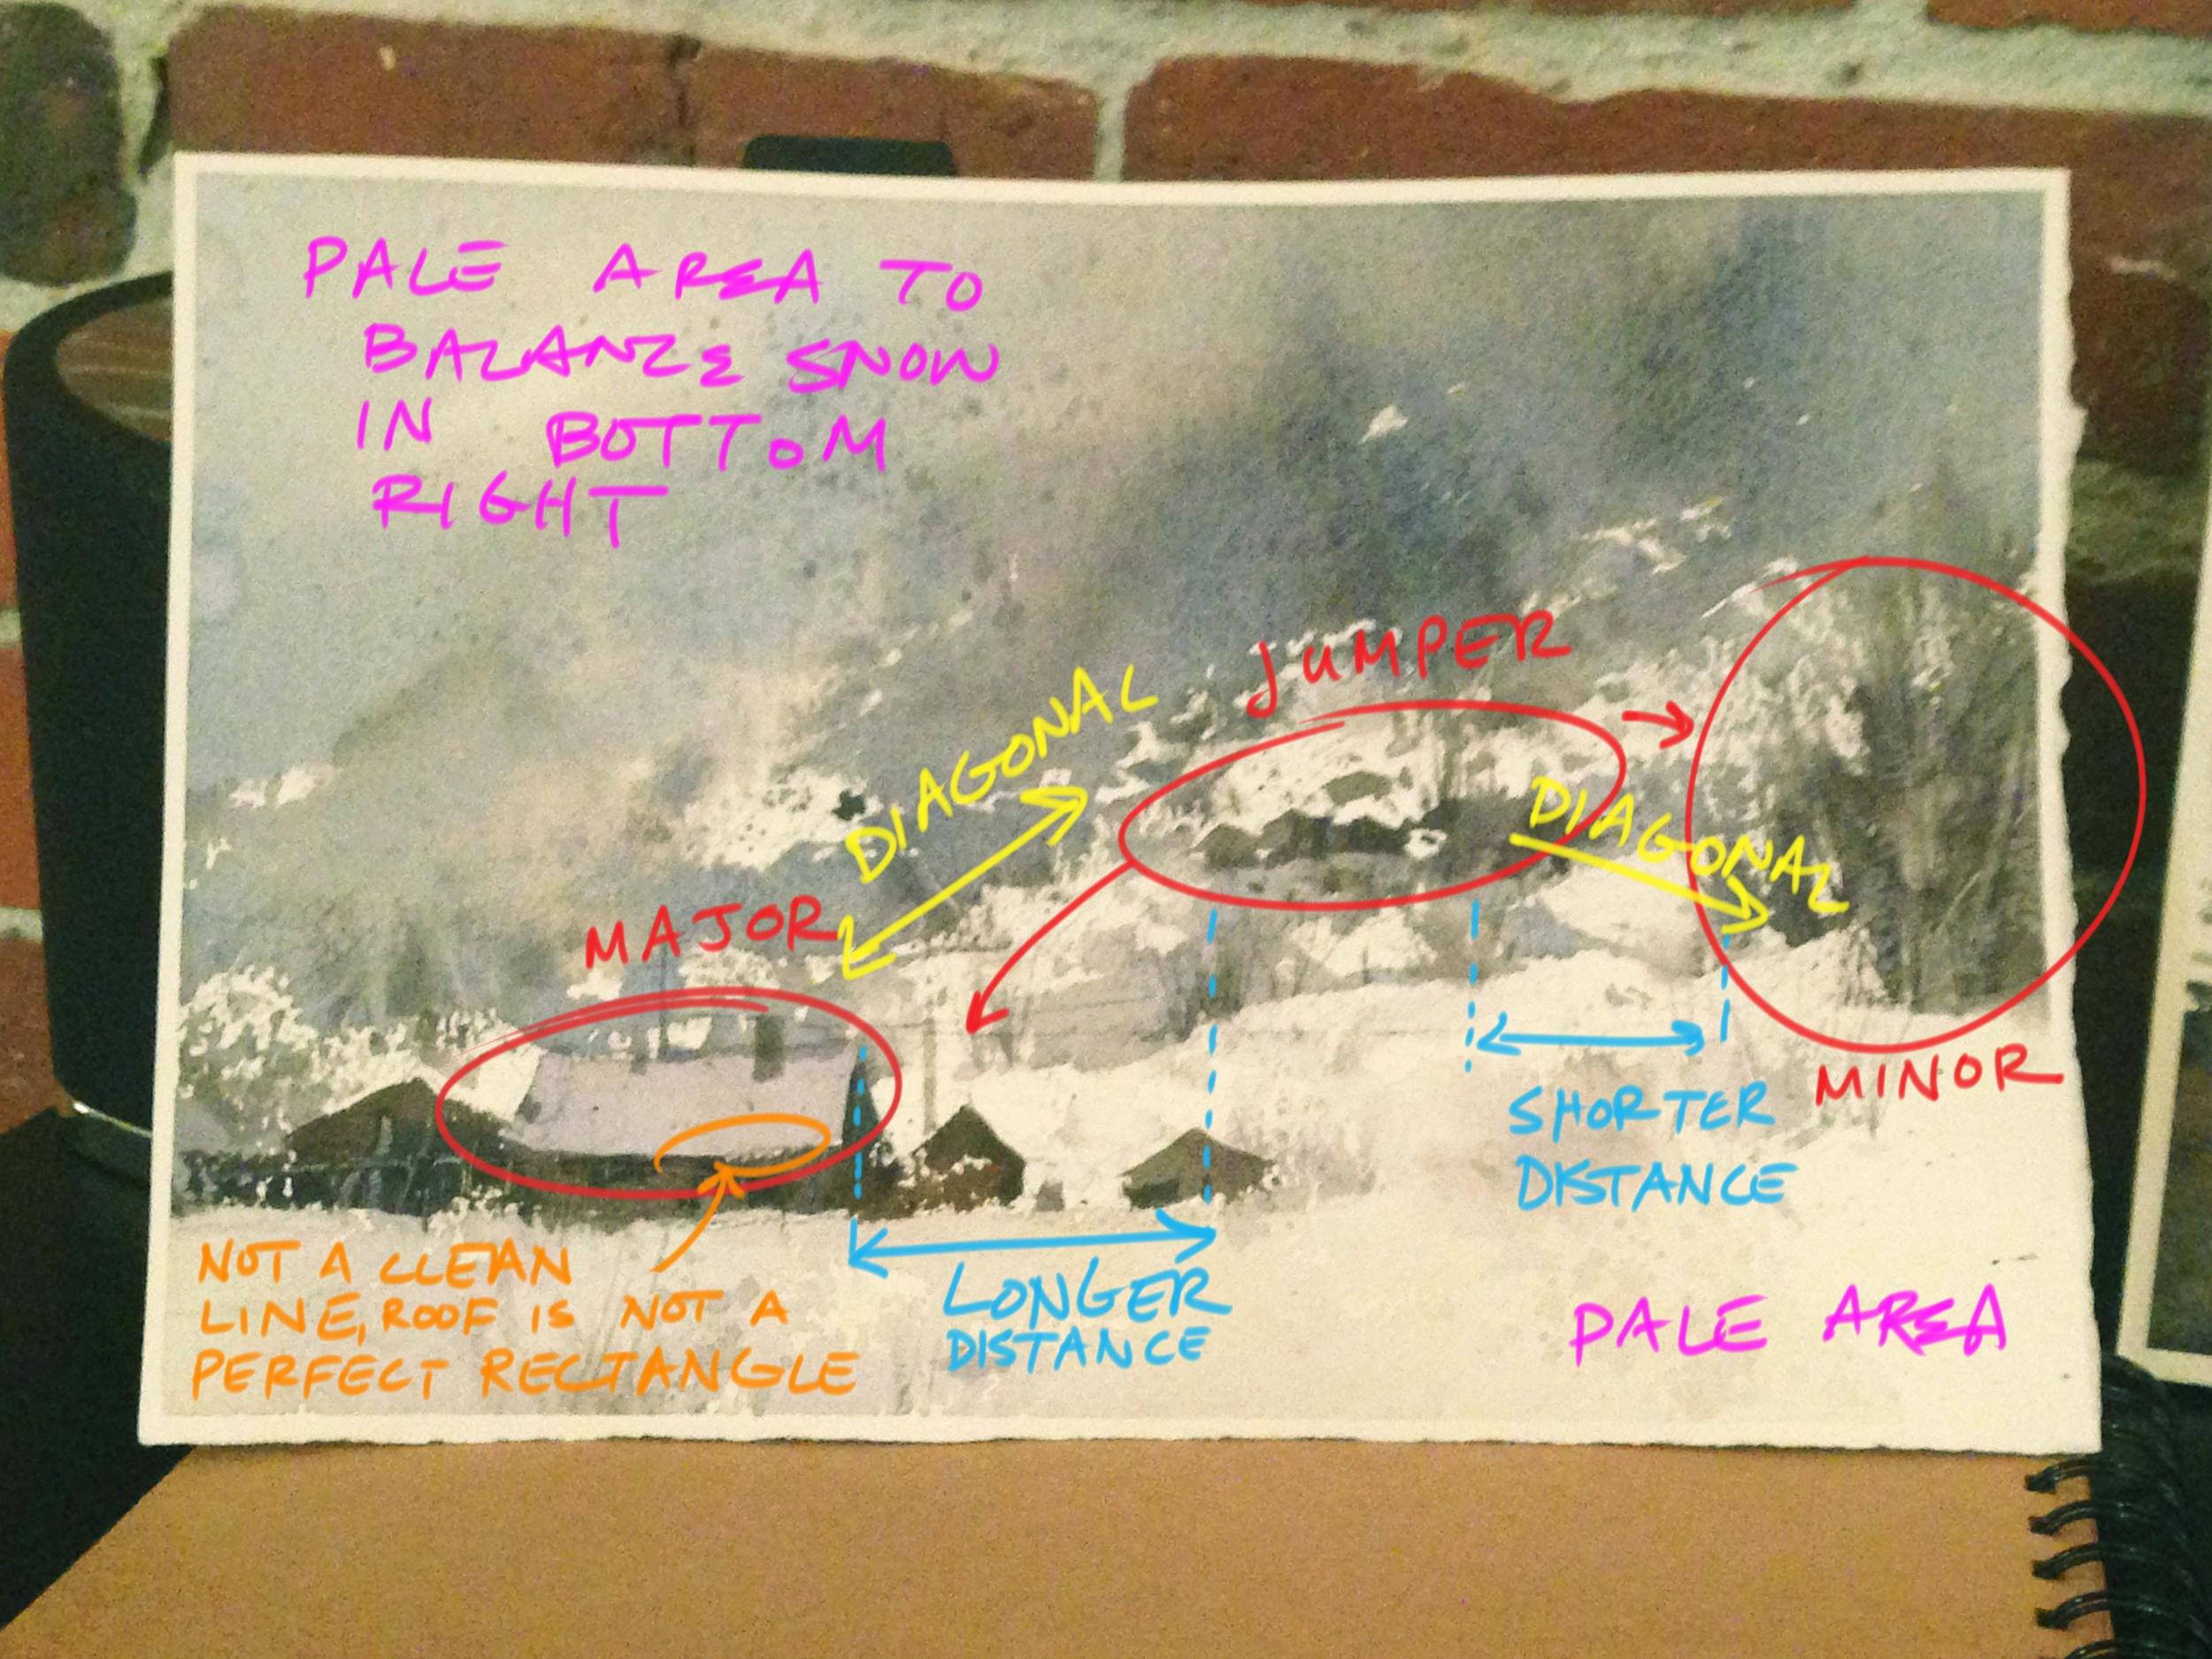 PALE AREA TO
BALANCE SNOW
IN BOTTOM
RIGHT
JUMPER
DIAGONAL
DIAGONAL
MAJOR
MINOR
SHORTER
DISTANCE
NOT A CLEAN
LINE, ROOF IS NOT A
PERFECT RECTANGLE
LONGER
DISTANCE
PALE AREA